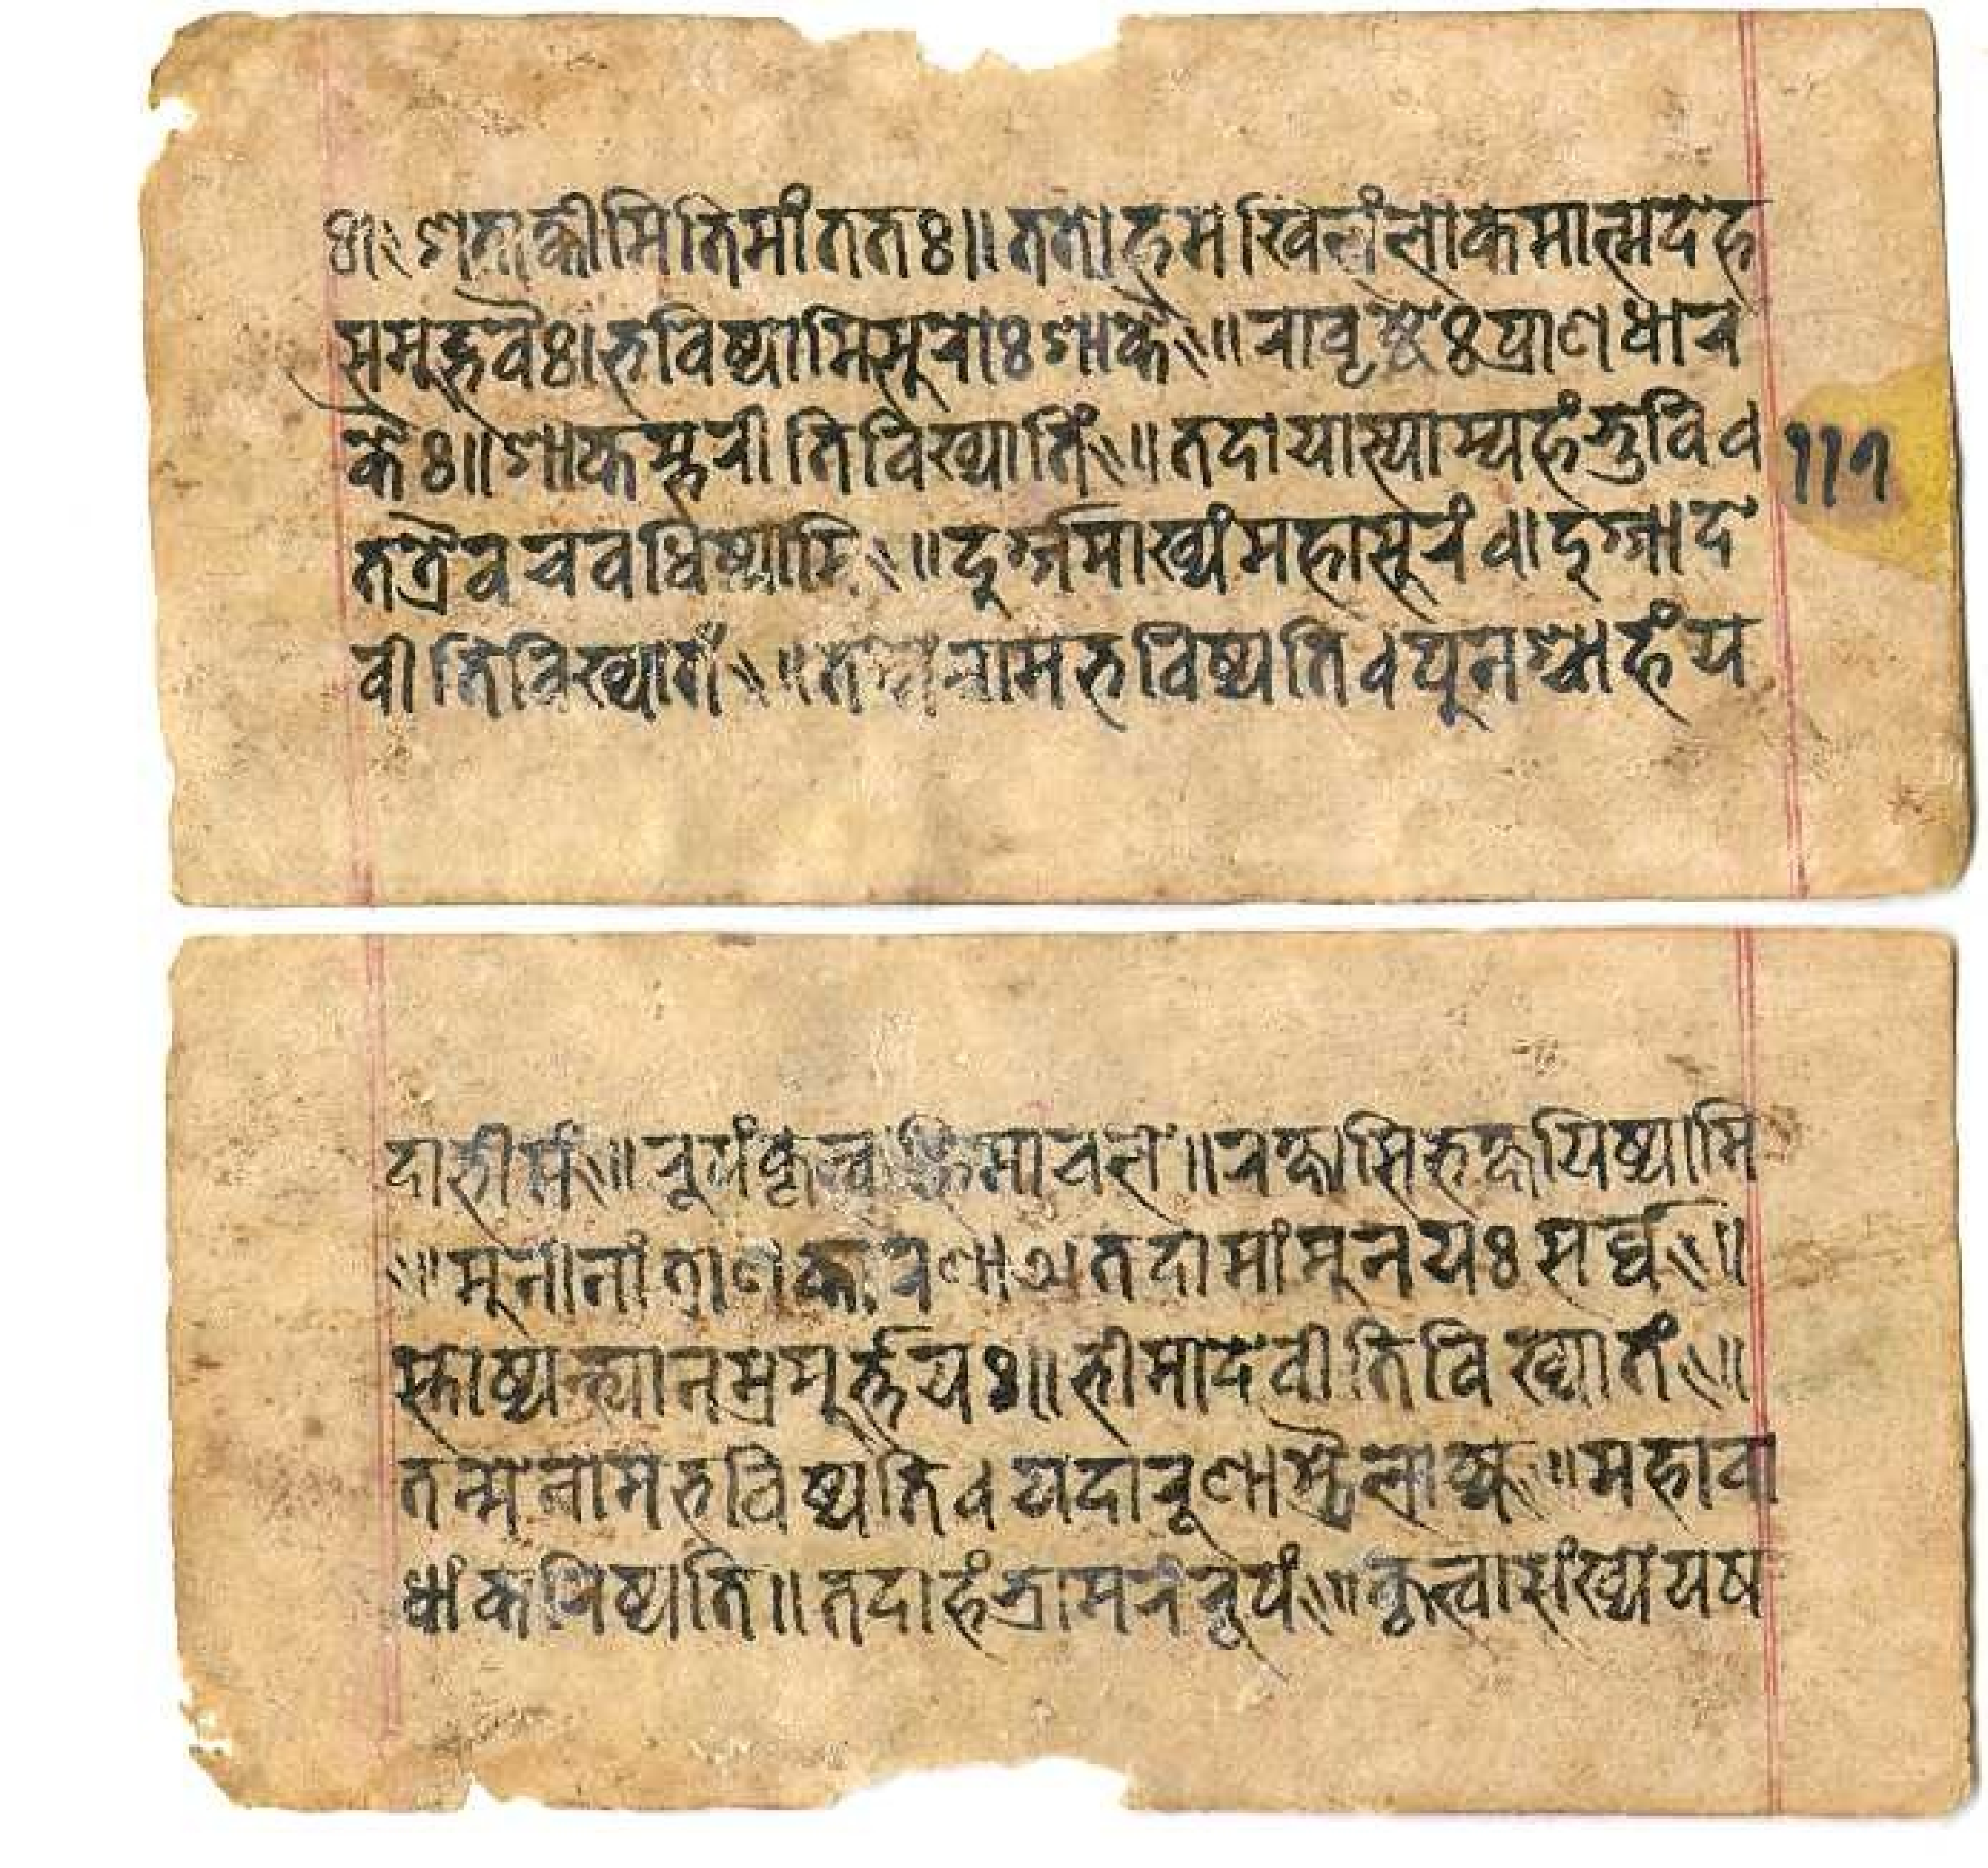 ः शताक्षीमितिमांततः॥ततोहमखिलंलोकमात्मदेह
समुद्भवैः।भविष्यामिसुराःशाकै॥रावृष्टेःप्राणधार
कैः॥शाकम्भरीतिविख्यातिं॥तदायास्याम्यहंभुविव
तत्रैवचवधिष्यामि॥दुर्ग्गमाख्यंमहासुरंव॥दुर्ग्गादे
वीतिविख्यातं॥तन्मेनामभविष्यतिवपुनश्चाहंय
१११
दाभीमं॥रूपंकृत्वाहिमाचले॥रक्षांसिभक्षयिष्यामि
॥मुनीनांत्राणकारणात्तदामांमुनयःसर्व्वे॥
स्तोष्यन्त्यानम्रमूर्त्तयः॥भीमादेवीतिविख्यातं॥
तन्मेनामभविष्यतिवयदारुणाख्यस्त्रैलोक्ये॥महाबा
धांकरिष्यति॥तदाहंभ्रामरंरूपं॥कृत्वासंख्येयष